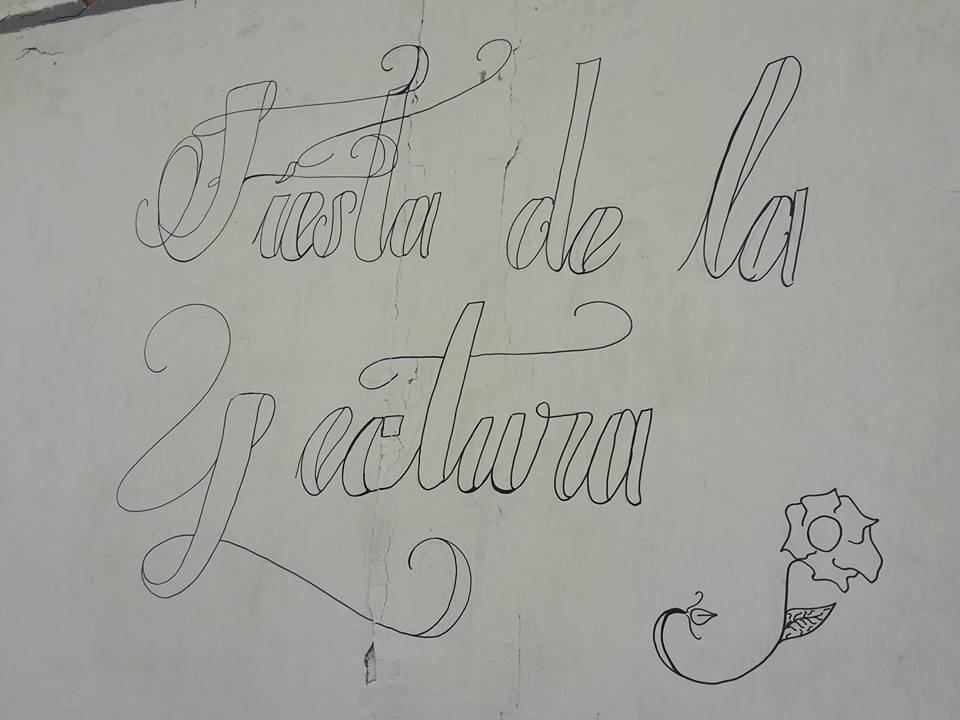 Fiesta de la
Lectura